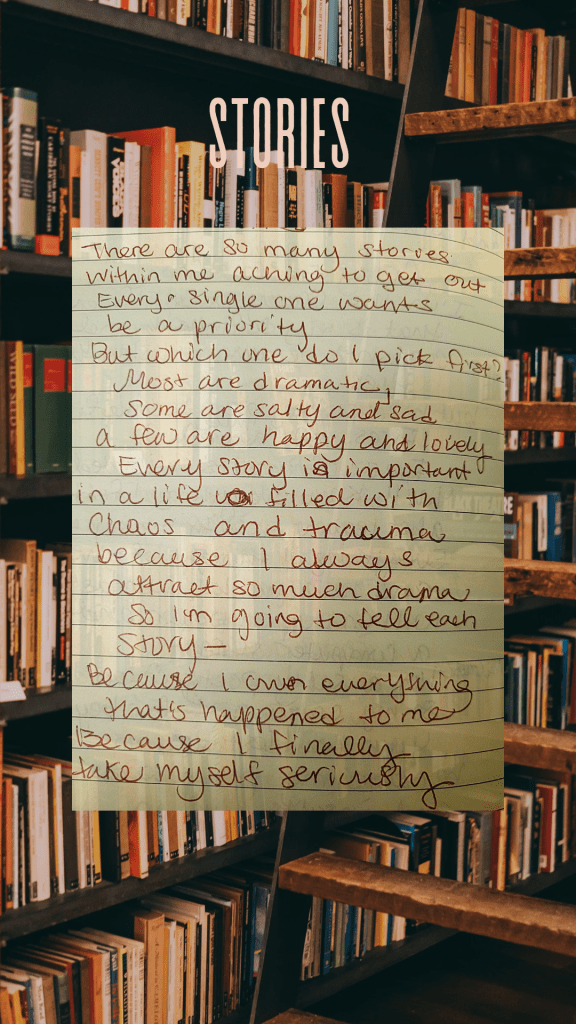 STORIES
There are so many stories
within me aching to get out
Every single one wants
be a priority
But which one do I pick first?
Most are dramatic,
some are salty and sad
a few are happy and lovely
Every story is important
in a life filled with
Chaos and trauma
because I always
attract so much drama
So I'm going to tell each
Story—
Because I own everything
that's happened to me
Because I finally
take myself seriously